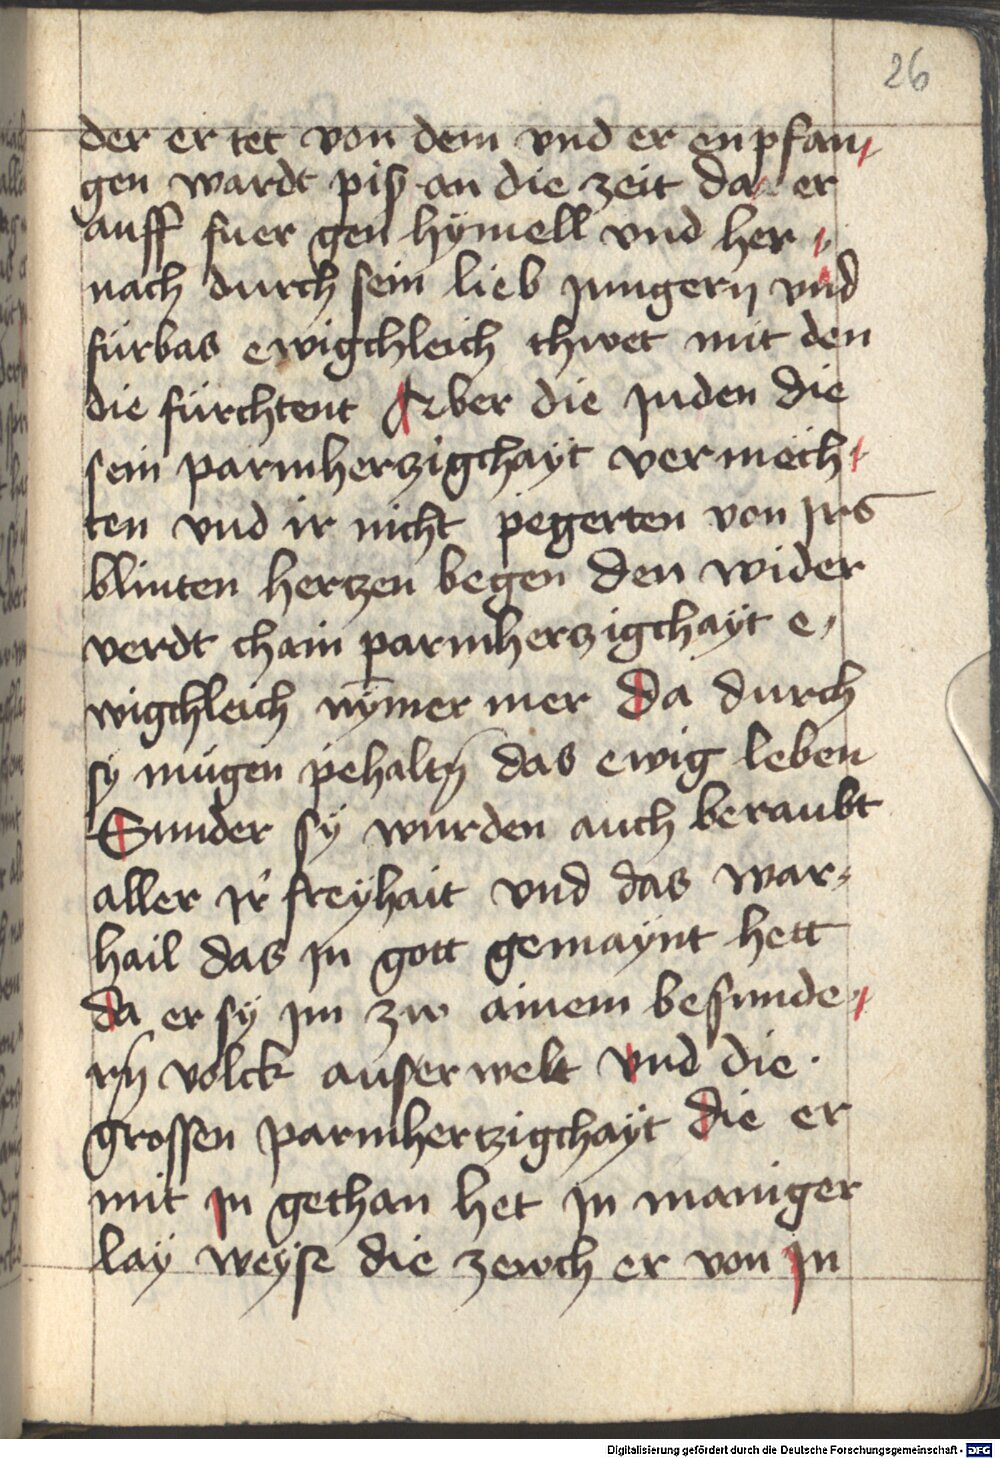 26
der er tet von dem vnd er enpfan,
gen wardt piß an die zeit da er
auff fuer gen hÿmell vnd her,
nach durch sein lieb Jungern vnd
fürbas ewigchleich thwet mit den
die fürchtent Aber die Juden die
sein parmherzigchaÿt vermech,
ten vnd ir nicht pegerten von Jrs
blinten hertzen begen den wider
verdt chain parmherzigchaÿt e,
wigchleich nÿmer mer Da durch
sy mügen pehaltn das ewig leben
Sunder sÿ wurden auch beraubt
aller Jr freÿhait vnd das war,
hail das Jn gott gemaÿnt hett
da er sÿ Jm zw ainem besunde,
rn volck auserwelt vnd die
grossen parmhertzigchaÿt die er
mit Jn gethan het Jn maniger
laÿ weÿse die zewch er von Jn
Digitalisierung gefördert durch die Deutsche Forschungsgemeinschaft - DFG